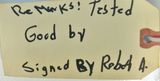 Remarks! Tested
Good by
Signed BY Robert A.